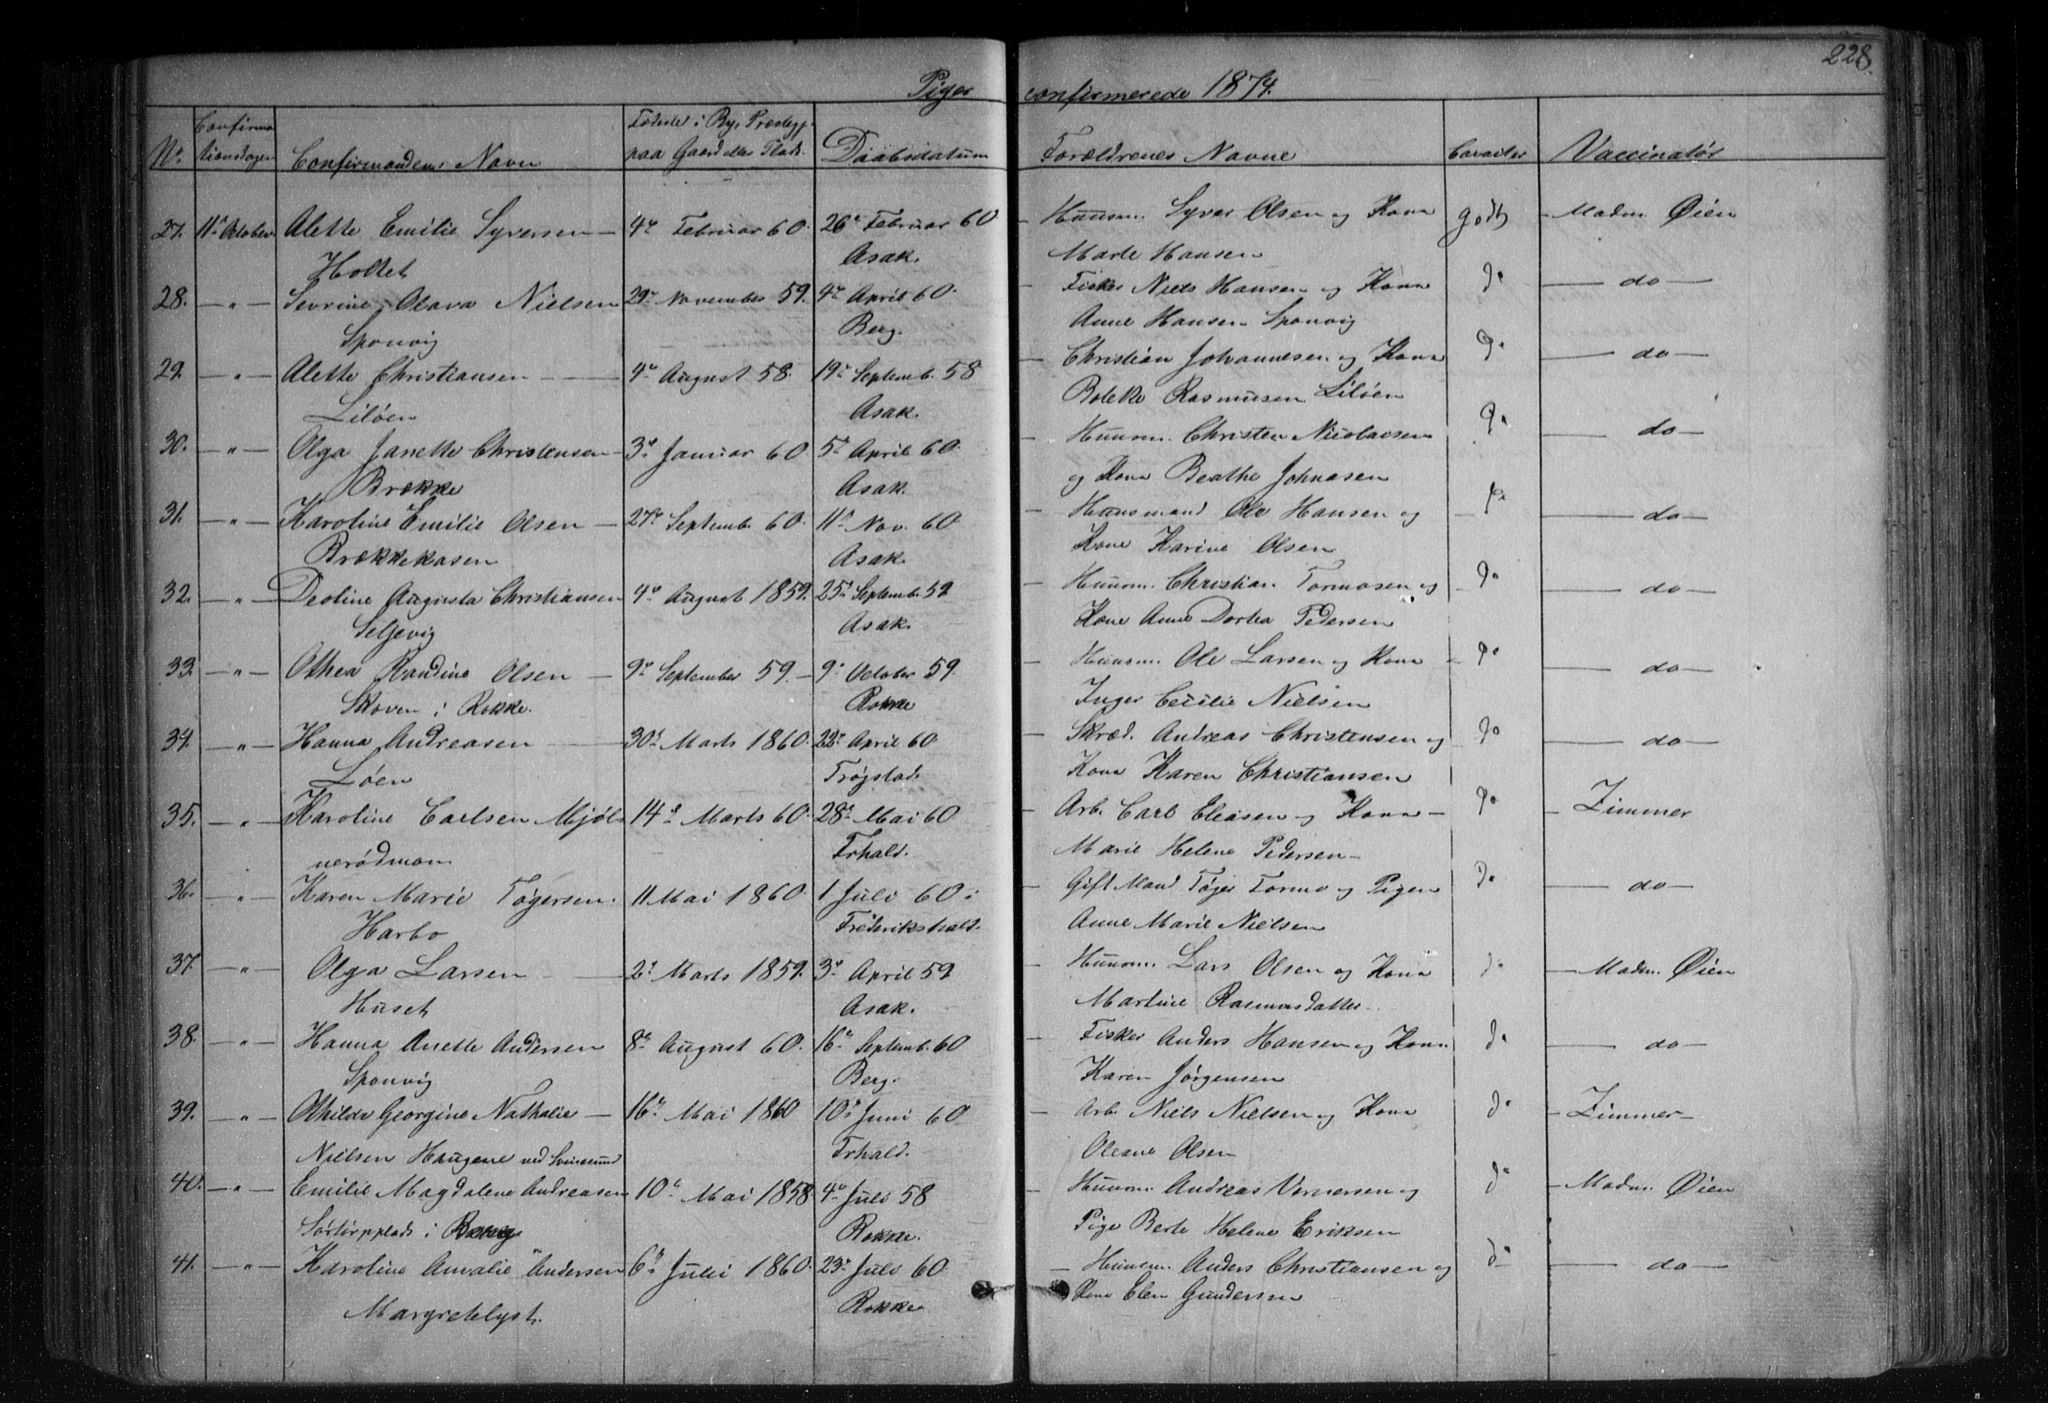 228.
Piger confirmerede 1874.
No. Confirmationsdagen Confirmandens Navn Fødested i By, Præstegj. paa Gaard eller Plads. Daabsdatum Forældrenes Navne Caracter Vaccinatør
27. 11te October Alette Emilie Syversen — 4de Februar 60. 26de Februar 60 — Huusm. Syver Olsen og Kone godt — Madm. Øien
Holtet Asak. Marte Hansen
28. — " — Sevrine Olava Nielsen 29de November 59. 4de April 60. — Fisker Niels Hansen og Kone do — do —
Sponvig Berg. Anne Hansen Sponvig
29. — " — Alette Christiansen — 4de August 58. 19de Septemb. 58 — Christian Johannesen og Kone do — do —
Liløen Asak. Bolette Rasmusen Liløen
30. — " — Olga Janette Christensen — 3de Januar 60. 5te April 60. — Huusm. Christen Nicolaisen do — do —
Brække Asak. og Kone Beathe Johnasen
31. — " — Karoline Emilie Olsen — 27de Septemb. 60. 11te Nov. 60 — Huusmand Ole Hansen og — do — do —
Brækkekasen Asak. Kone Karine Olsen
32. — " — Deoline Augusta Christiansen 4de August 1859. 25de Septemb. 59 — Huusm. Christian Tormosen og do — do —
Seljevig Asak. Kone Anne Dortea Pedersen
33. — " — Othea Randine Olsen — 9de September 59. — 9de October 59. — Huusm. Ole Larsen og Kone — do — do —
Skoven i Rokke. Rokke Inger Cecilie Nielsen
34. — " — Hanna Andreasen — 30de Marts 1860. 22de April 60 — Skræd. Andreas Christensen og do — do —
Løen Trøgstad. Kone Karen Christiansen
35. — " — Karoline Carlsen Mjøl- 14de Marts 60. 28de Mai 60 — Arb. Carl Eleasen og Kone — do — Zimmer
nerødmom Frhald. Marie Helene Pedersen —
36. — " — Karen Marie Tøgersen. 11 Mai 1860. 1 Juli 60 i — Gift Mand Tøger Tormo og Pigen do — do —
Harbo Frederikshald. Anne Marie Nielsen
37. — " — Olga Larsen — 2de Marts 1859. 3de April 59 — Huusm. Lars Olsen og Kone do — Madm. Øien
Huset Asak. Martine Rasmusdatter.
38. — " — Hanna Anette Andersen 8de August 60. 16de Septemb. 60 — Fisker Anders Hansen og Kone do — do —
Sponvig Berg. Karen Jørgensen
39. — " — Othilde Georgine Nathalie — 16de Mai 1860 10de Juni 60 — Arb. Niels Nielsen og Kone do — Zimmer —
Nielsen Haugene ved Svinesund Frhald. Oleane Olsen
40. — " — Emilie Magdalene Andreasen 10de Mai 1858 4de Juli 58 — Huusm. Andreas Vernersen og do — Madm. Øien
Sørtorpplads i Berg Rokke. Pige Berte Helene Eriksen
41. — " — Karoline Amalie Andersen 6te Juli 1860. 23de Juli 60 — Huusm. Anders Christiansen og do — do —
Margretelyst. Rokke Kone Elen Gundersen